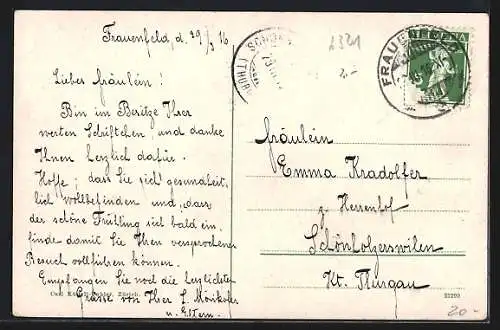 Frauenfeld, d. 29/3 16
Lieber fräulein!
Bin im Besitze Ihrer
werten Schriftchen und danke
Ihnen herzlich dafür.
Hoffe, dass Sie sich gesundheit-
lich wohlbefinden und, dass
der schöne Frühling sich bald ein-
finde damit Sie Ihren versprochenen
Besuch vollführen können.
Empfangen Sie noch die herzlichsten
Grüsse von Ihrer S. Mörikofer
u. Eltern.
HELVETIA
FRAUENFELD
SCHÖN
(THUR
2321
2.-
fräulein
Emma Kradolfer
z. Herrenhof
Schönholzerswilen
Kt. Thurgau
Zürich.
21299
20.-